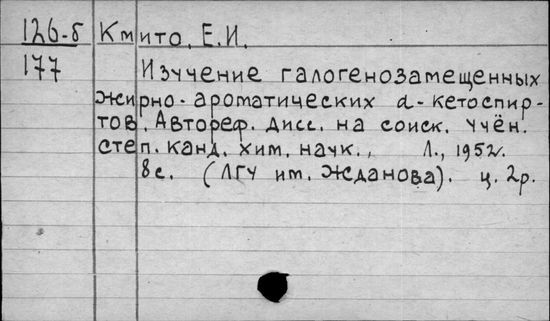 126-б Кмито, Е.И.
177 Изучение галогенозамещенных
жирно-ароматических α-кетоспир-
тов. Автореф. дисс. на соиск. учён.
степ. канд. хим. наук., Л., 1952.
8с. (ЛГУ им. Жданова). ц. 2р.